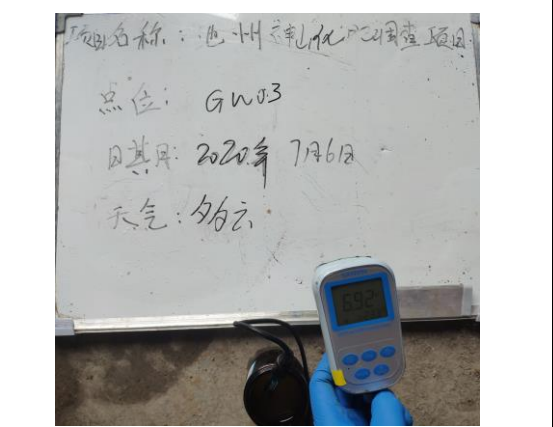 项目名称：巴州轧花厂调查项目
点位：GW03
日期：2020年7月6日
天气：多云
6.92